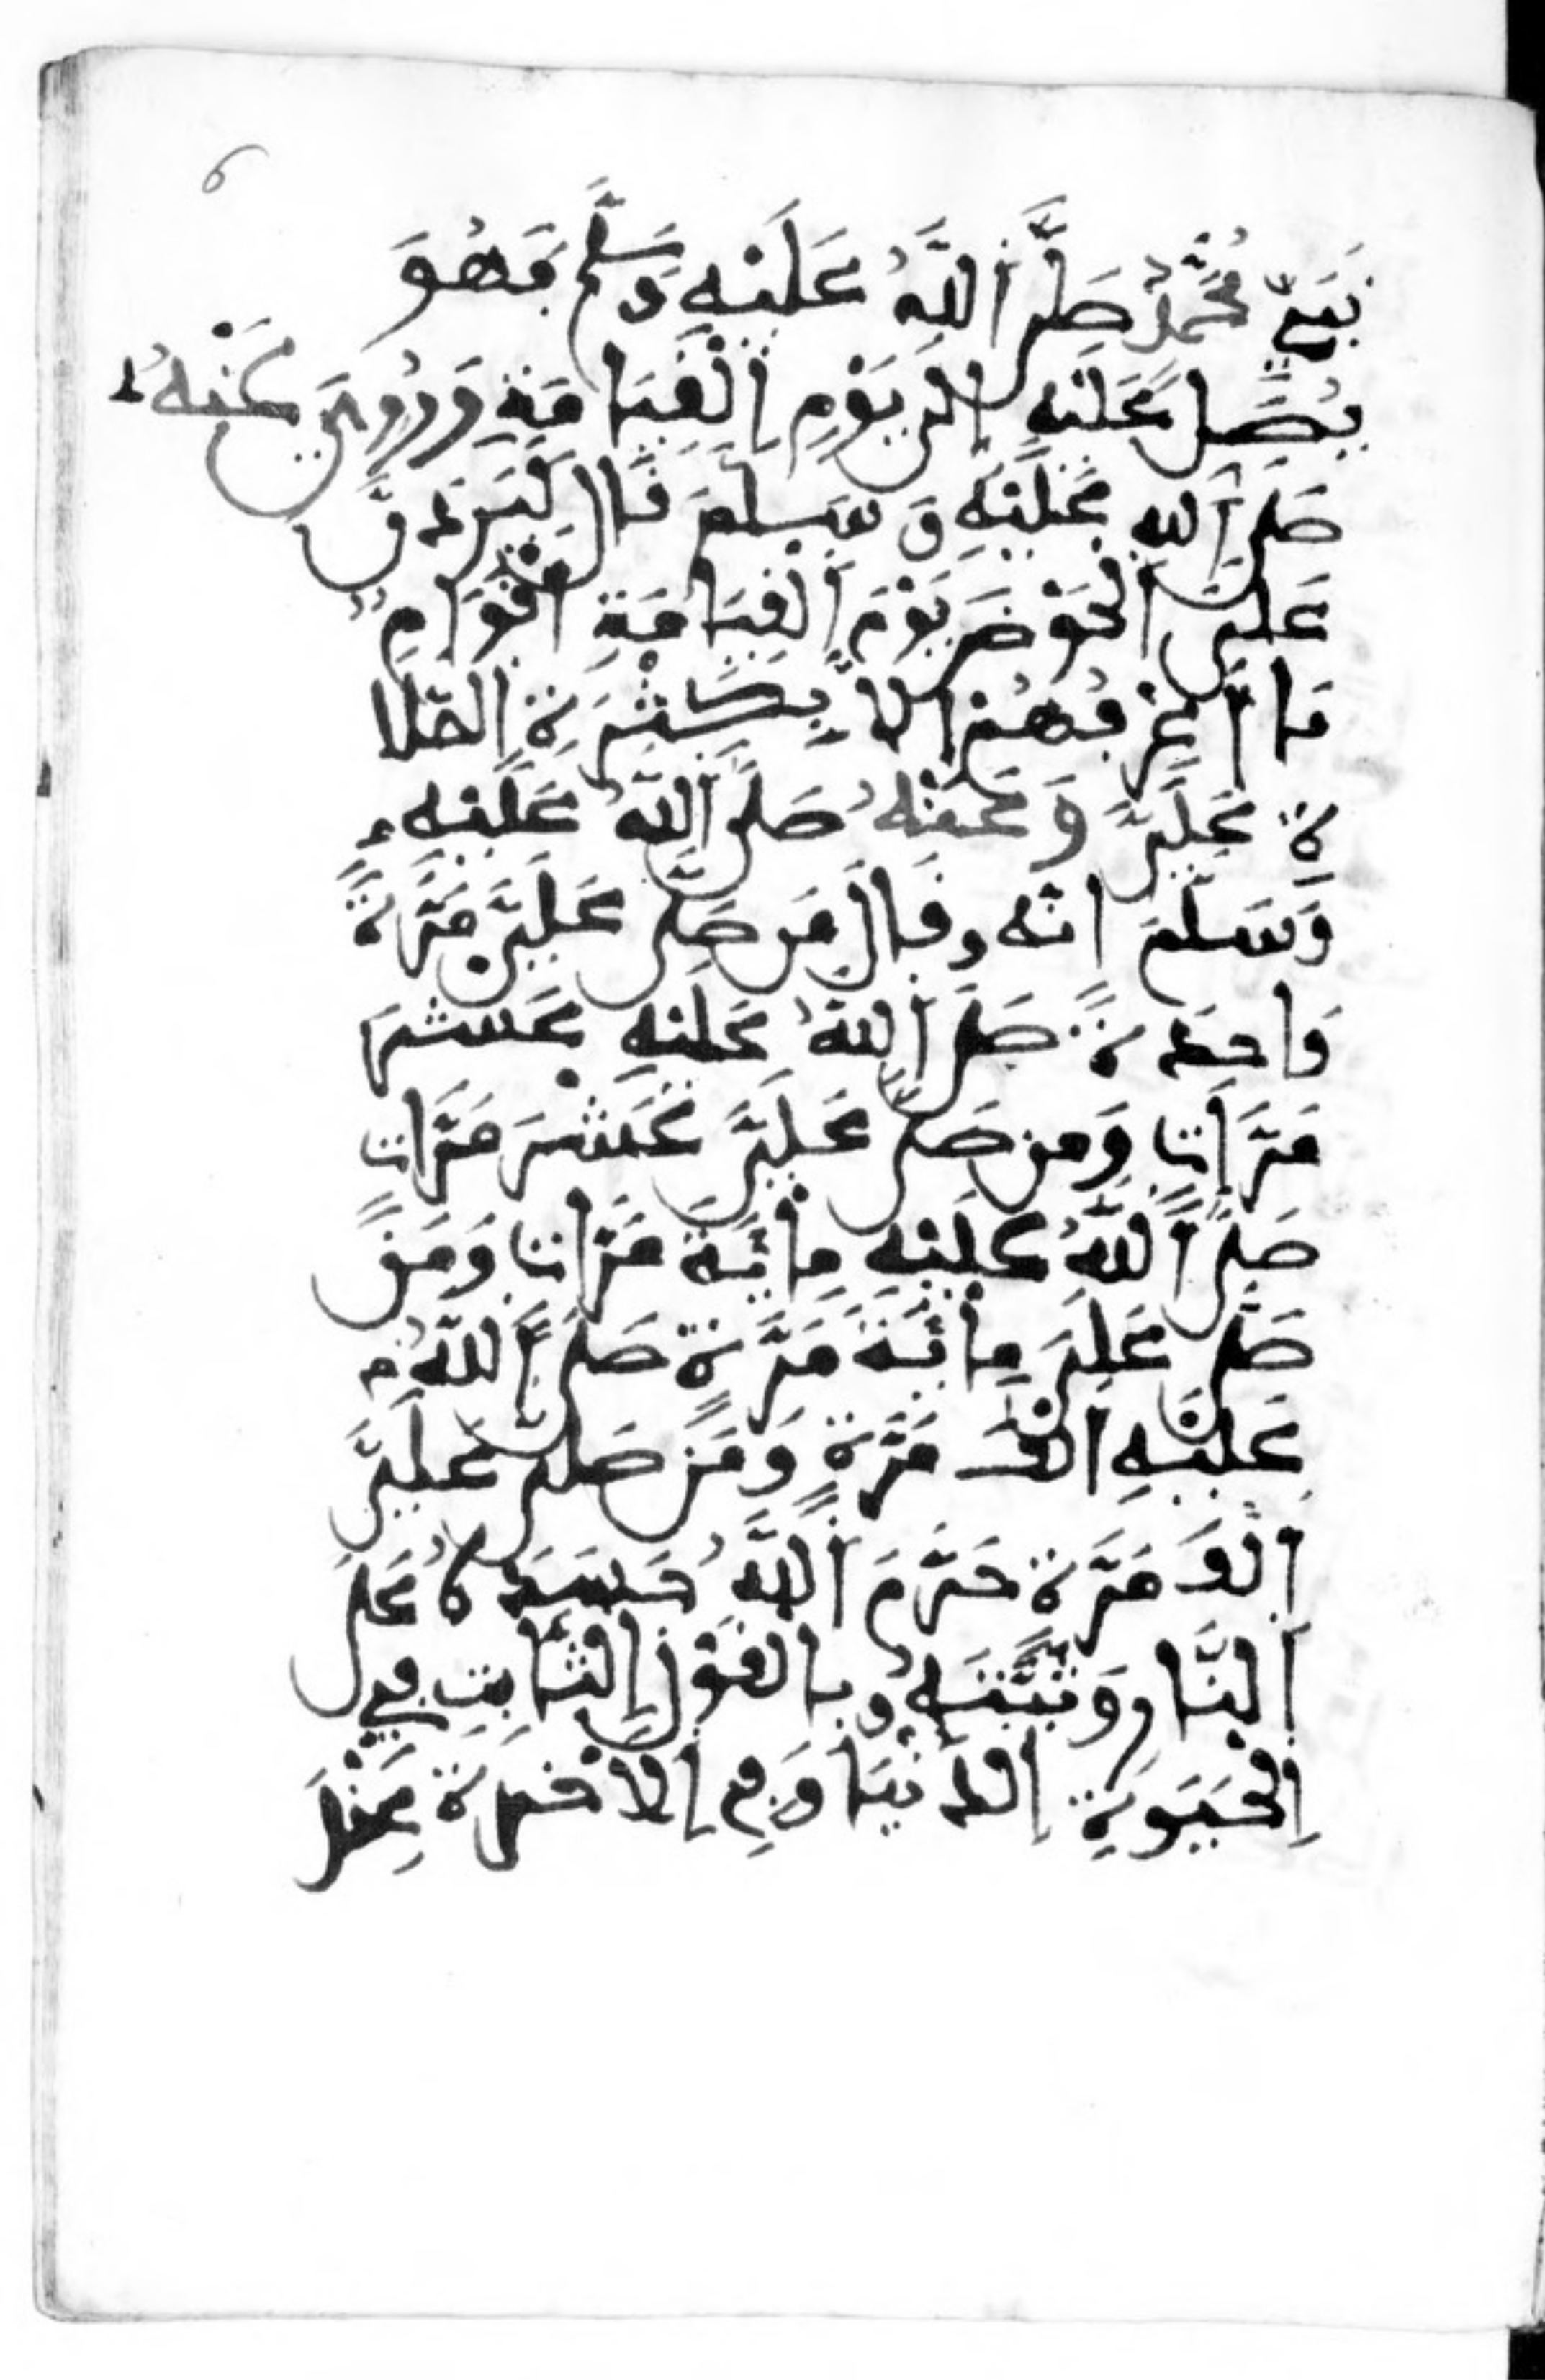 6
نَبِيّ مُحَمَّدٌ صَلَّى اللَّهُ عَلَيْهِ وَسَلَّمَ فَهُوَ
يُصَلِّ عَلَيْهِ إِلَى يَوْمِ الْقِيَامَةِ وَرُوِيَ عَنْهُ
صَلَّى اللَّهُ عَلَيْهِ وَسَلَّمَ قَالَ لَيَرِدَنَّ
عَلَى الْحَوْضِ يَوْمَ الْقِيَامَةِ أَقْوَامٌ
مَا أَعْرِفُهُمْ إِلَّا بِكَثْرَةِ الصَّلَا
ةِ عَلَيَّ وَعَنْهُ صَلَّى اللَّهُ عَلَيْهِ
وَسَلَّمَ أَنَّهُ قَالَ مَن صَلَّى عَلَيَّ مَرَّةً
وَاحِدَةً صَلَّى اللَّهُ عَلَيْهِ عَشْرَ
مَرَّاتٍ وَمَن صَلَّى عَلَيَّ عَشْرَ مَرَّاتٍ
صَلَّى اللَّهُ عَلَيْهِ مِائَةَ مَرَّاتٍ وَمَن
صَلَّى عَلَيَّ مِائَةَ مَرَّةٍ صَلَّى اللَّهُ
عَلَيْهِ أَلْفَ مَرَّةٍ وَمَنْ صَلَّى عَلَيَّ
أَلْفَ مَرَّةٍ حَرَّمَ اللَّهُ جَسَدَهُ عَلَى
النَّارِ وَثَبَّتَهُ بِالْقَوْلِ الثَّابِتِ فِي
الْحَيَوةِ الدُّنْيَا وَفِي الْآخِرَةِ عِنْدَ